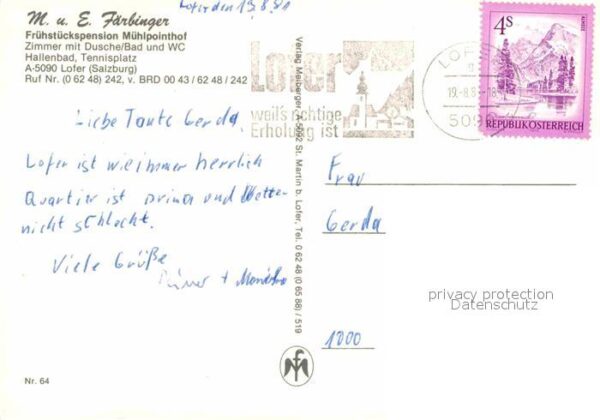 M. u. E. Färbinger
Frühstückspension Mühlpointhof
Zimmer mit Dusche/Bad und WC
Hallenbad, Tennisplatz
A-5090 Lofer (Salzburg)
Ruf Nr. (0 62 48) 242, v. BRD 00 43 / 62 48 / 242
Lofer den 19.8.81
Liebe Tante Gerda,
Lofer ist wie immer herrlich
Quartier ist prima und Wetter
nicht schlecht.
Viele Grüße
+ Monika
Nr. 64
Verlag Meiberger A-5092 St. Martin b. Lofer, Tel. 0 62 48 (0 65 88) / 519
Lofer
weil's richtige
Erholung ist
LOFER
19.-8.8
-18
5090
4S
ALMSEE
REPUBLIK ÖSTERREICH
Frau
Gerda
1000
privacy protection
Datenschutz